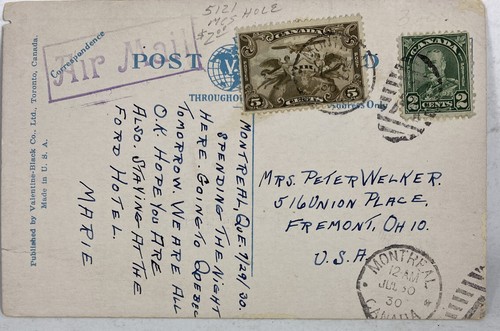 5121 HOLE
MCS
$2.00
Air Mail
Correspondence
POST
THROUGHOU
Address Only
CANADA
5 CENTS 5
CANADA
2 CENTS 2
Published by Valentine-Black Co., Ltd., Toronto, Canada.
Made in U. S. A.
MONTREAL, QUE 7/29/30.
SPENDING THE NIGHT
HERE. GOING TO QUEBEC
TOMORROW. WE ARE ALL
O.K. HOPE YOU ARE
ALSO. STAYING AT THE
FORD HOTEL.
MARIE
MRS. PETER WELKER.
516 UNION PLACE,
FREMONT, OHIO.
U.S.A.
MONTREAL
12 AM
JUL 30
30
CANADA